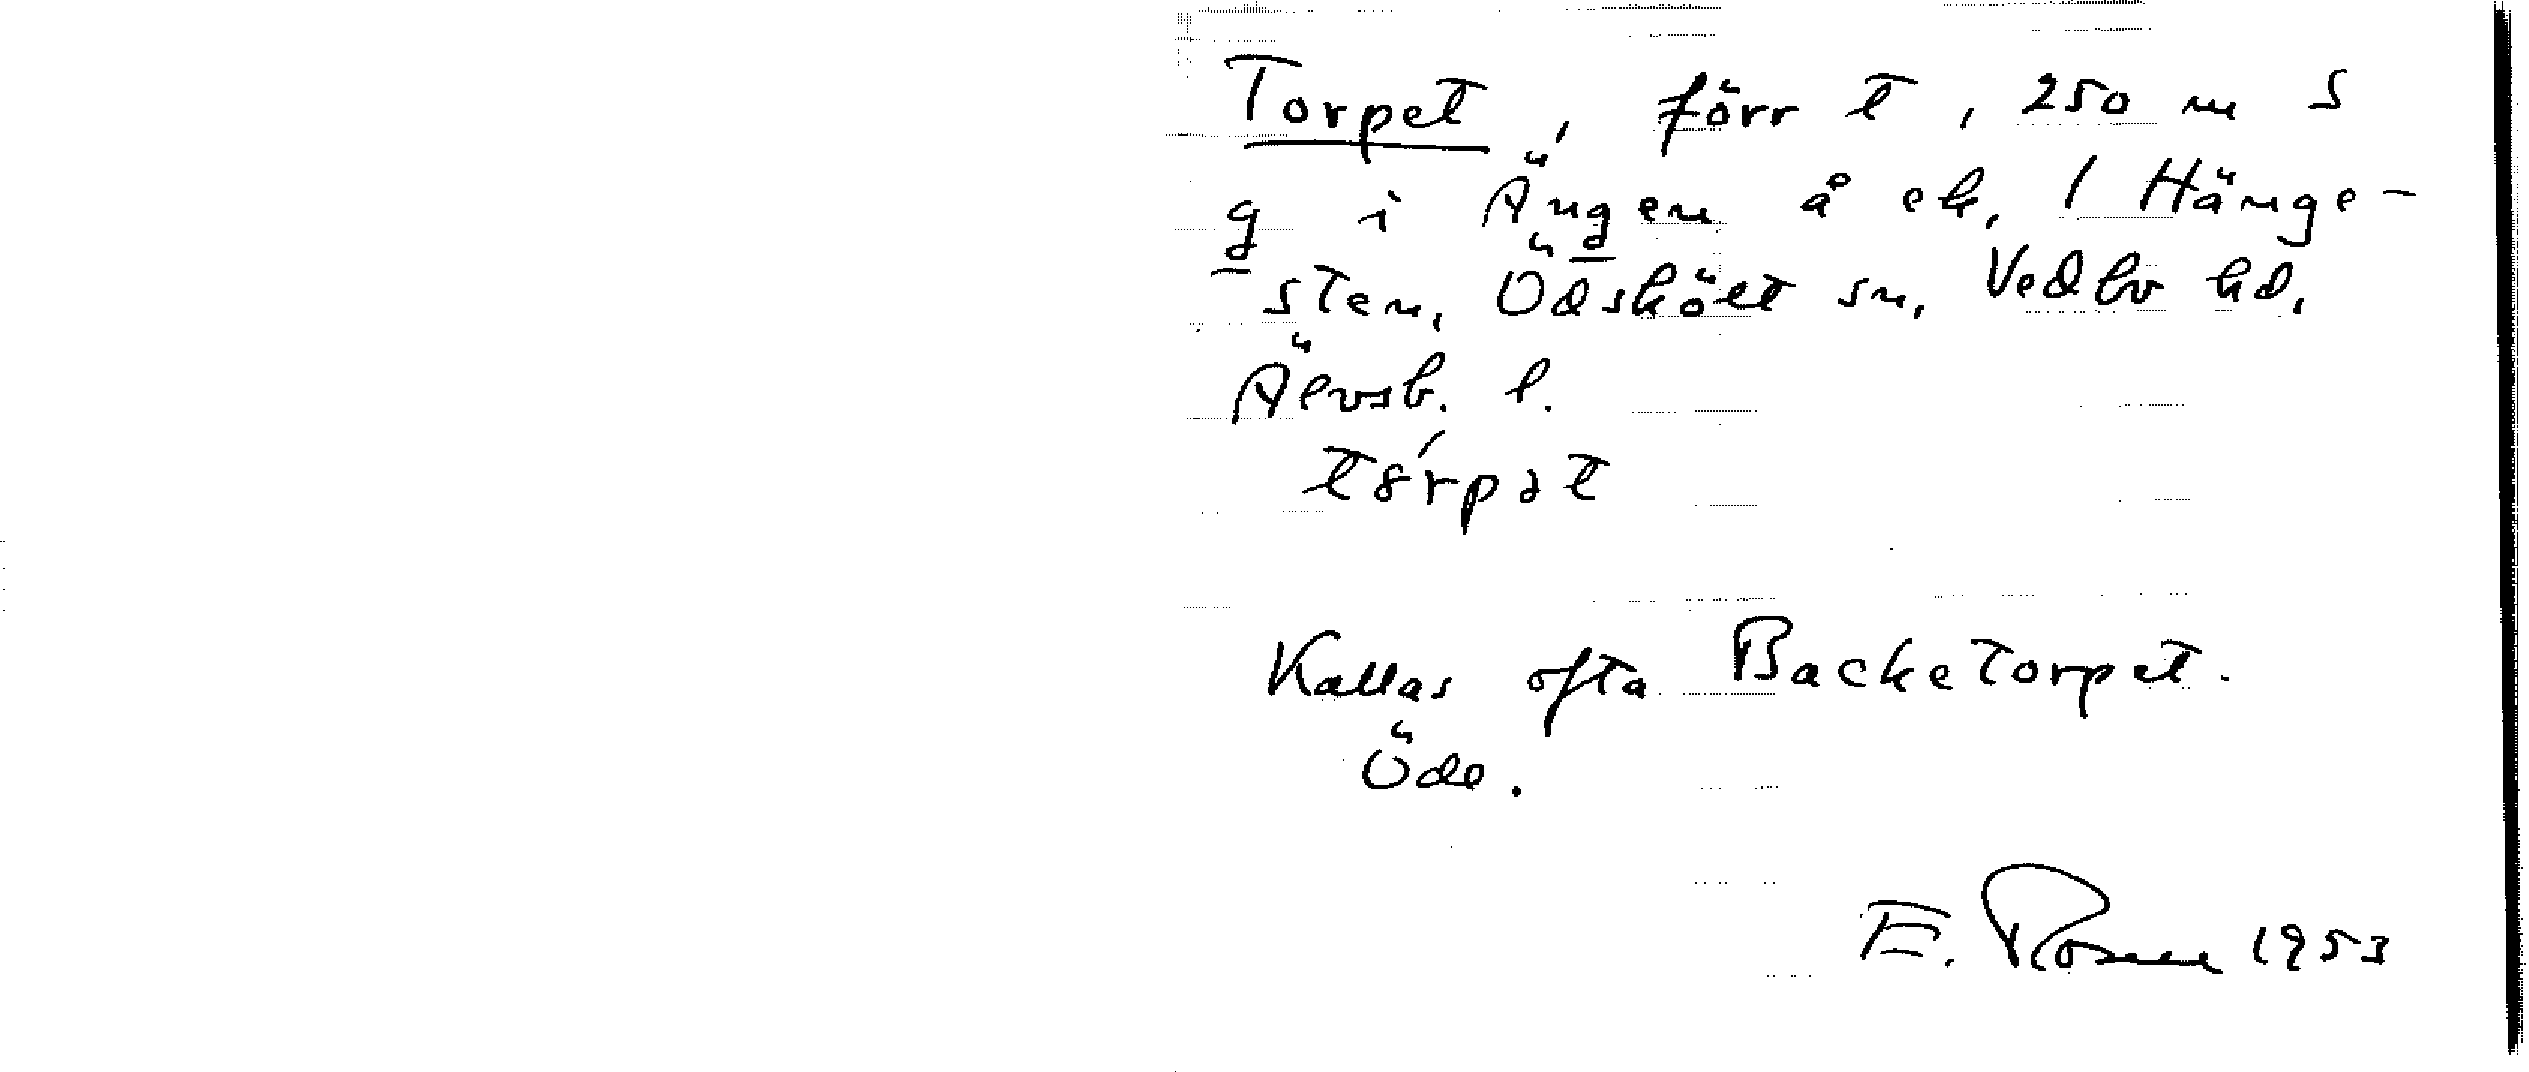 Torpet, förr t, 250 m S
g i Ängen å ek. 1 Hänge-
sten, Ödskölt sn, Vedbo hd,
Älvsb. l.
tórpət
Kallas ofta Backetorpet.
Öde.
E. Rosen 1953